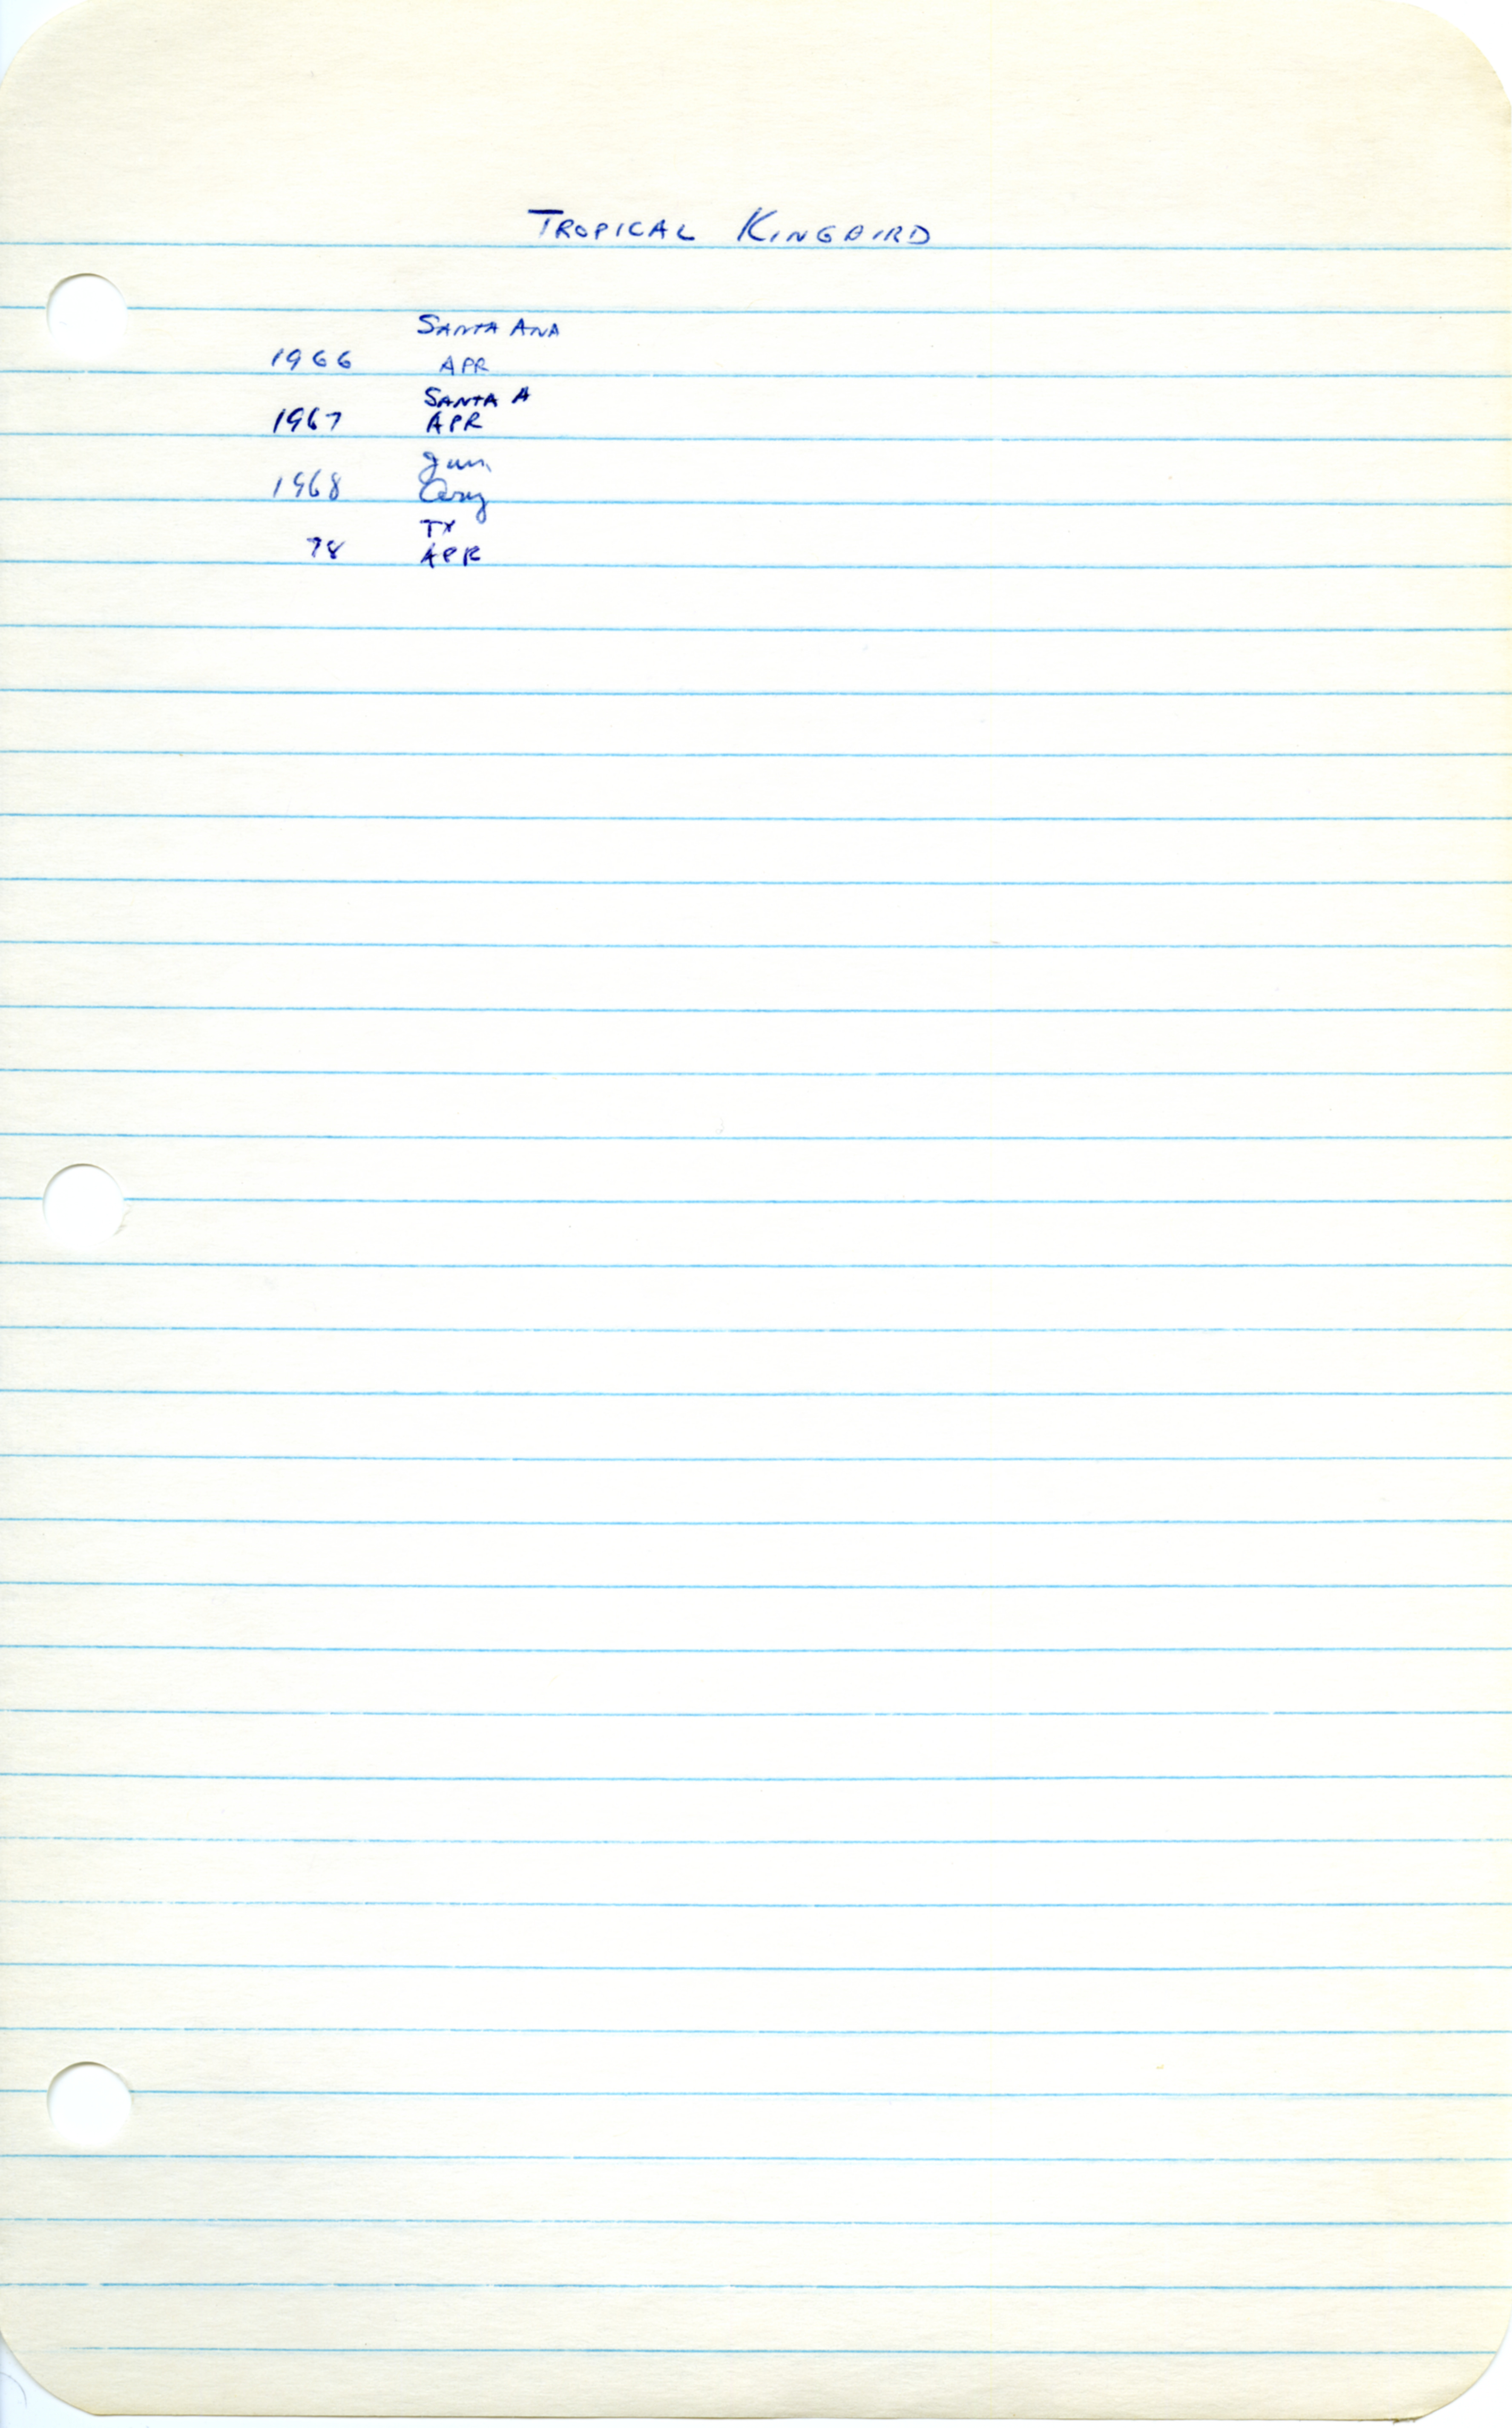 TROPICAL KINGBIRD
SANTA ANA
1966 APR
SANTA A
1967 APR
Jun
1968
TX
78 APR